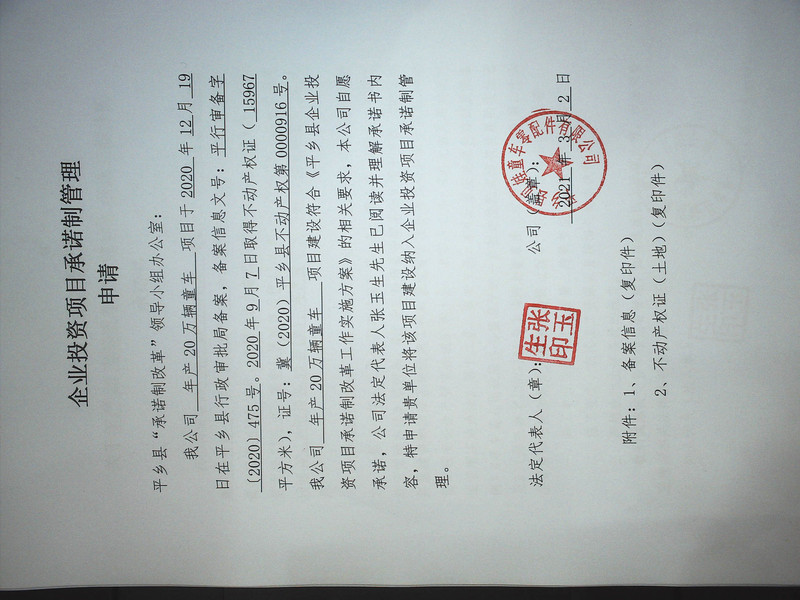 企业投资项目承诺制管理
申请
平乡县“承诺制改革”领导小组办公室：
我公司 年产20万辆童车 项目于 2020 年 12 月 19
日在平乡县行政审批局备案，备案信息文号：平行审备字
〔2020〕475 号。2020 年 9 月 7 日取得不动产权证（ 15967
平方米），证号：冀（2020）平乡县不动产权第 0000916 号。
我公司 年产20万辆童车 项目建设符合《平乡县企业投
资项目承诺制改革工作实施方案》的相关要求，本公司自愿
承诺，公司法定代表人张玉生先生已阅读并理解承诺书内
容，特申请贵单位将该项目建设纳入企业投资项目承诺制管
理。
法定代表人（章）： 公司（盖章）：
张玉生印
童车零配件有限公司
2021 年 3 月 2 日
附件：1、备案信息（复印件）
2、不动产权证（土地）（复印件）